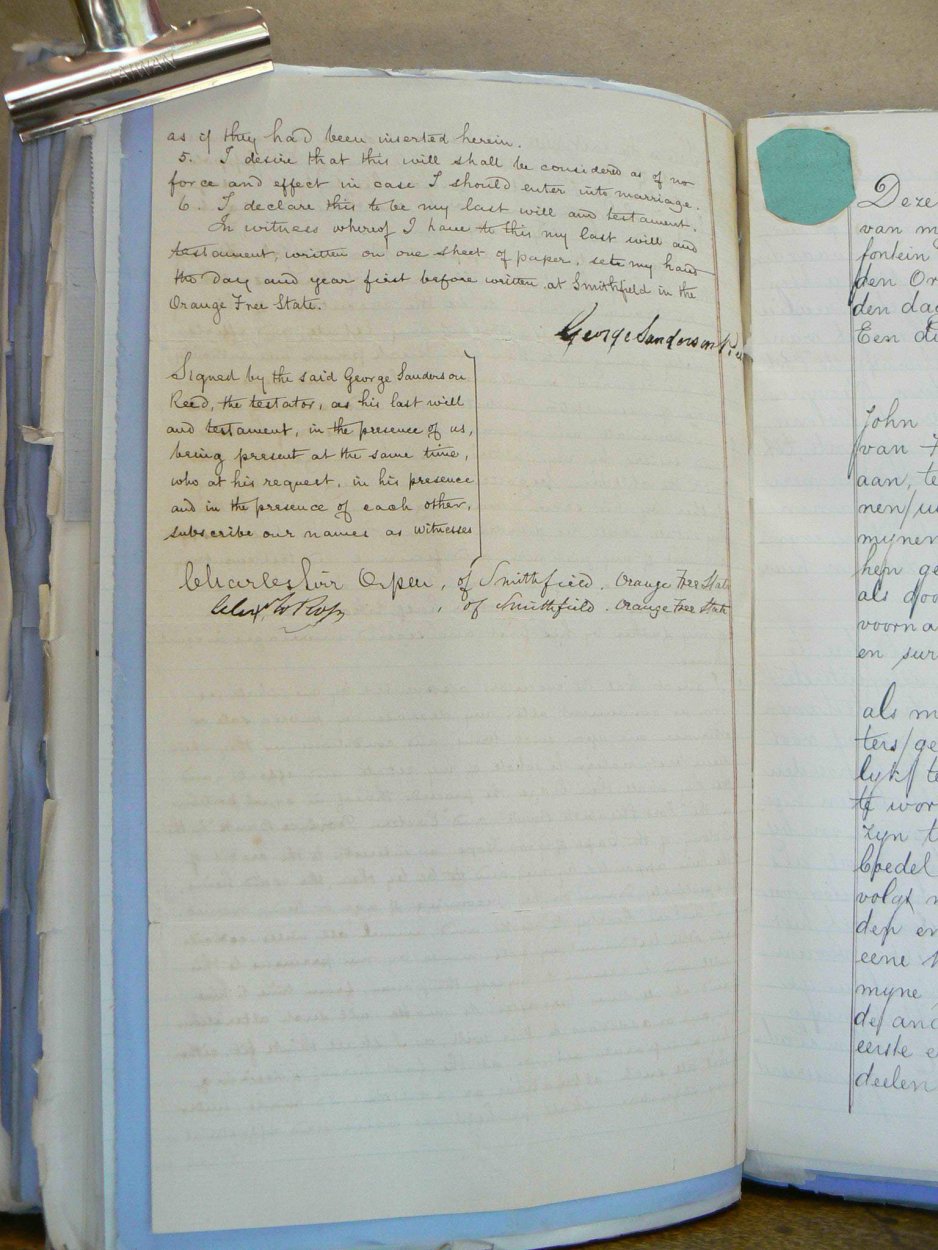 TAIWAN
as if they had been inserted herein.
5. I desire that this will shall be considered as of no
force and effect in case I should enter into marriage.
6. I declare this to be my last will and testament.
In witness whereof I have to this my last will and
testament, written on one sheet of paper, sett my hand
the day and year first before written at Smithfield in the
Orange Free State.
George Sanderson
Signed by the said George Sanderson
Reed, the testator, as his last will
and testament, in the presence of us,
being present at the same time,
who at his request, in his presence
and in the presence of each other,
subscribe our names as witnesses
Charles Orpen, of Smithfield. Orange Free State
, of Smithfield. Orange Free State
Deze
van m
fontein
den Or
den dag
Een du
John
van
aan, te
nen/
mijnen
hen ge
als doo
voorna
en sur
als m
ters/ge
lijk/ te
te wor
zijn t
boedel
volgt
den en
eene
mijne
de and
eerste e
deelen